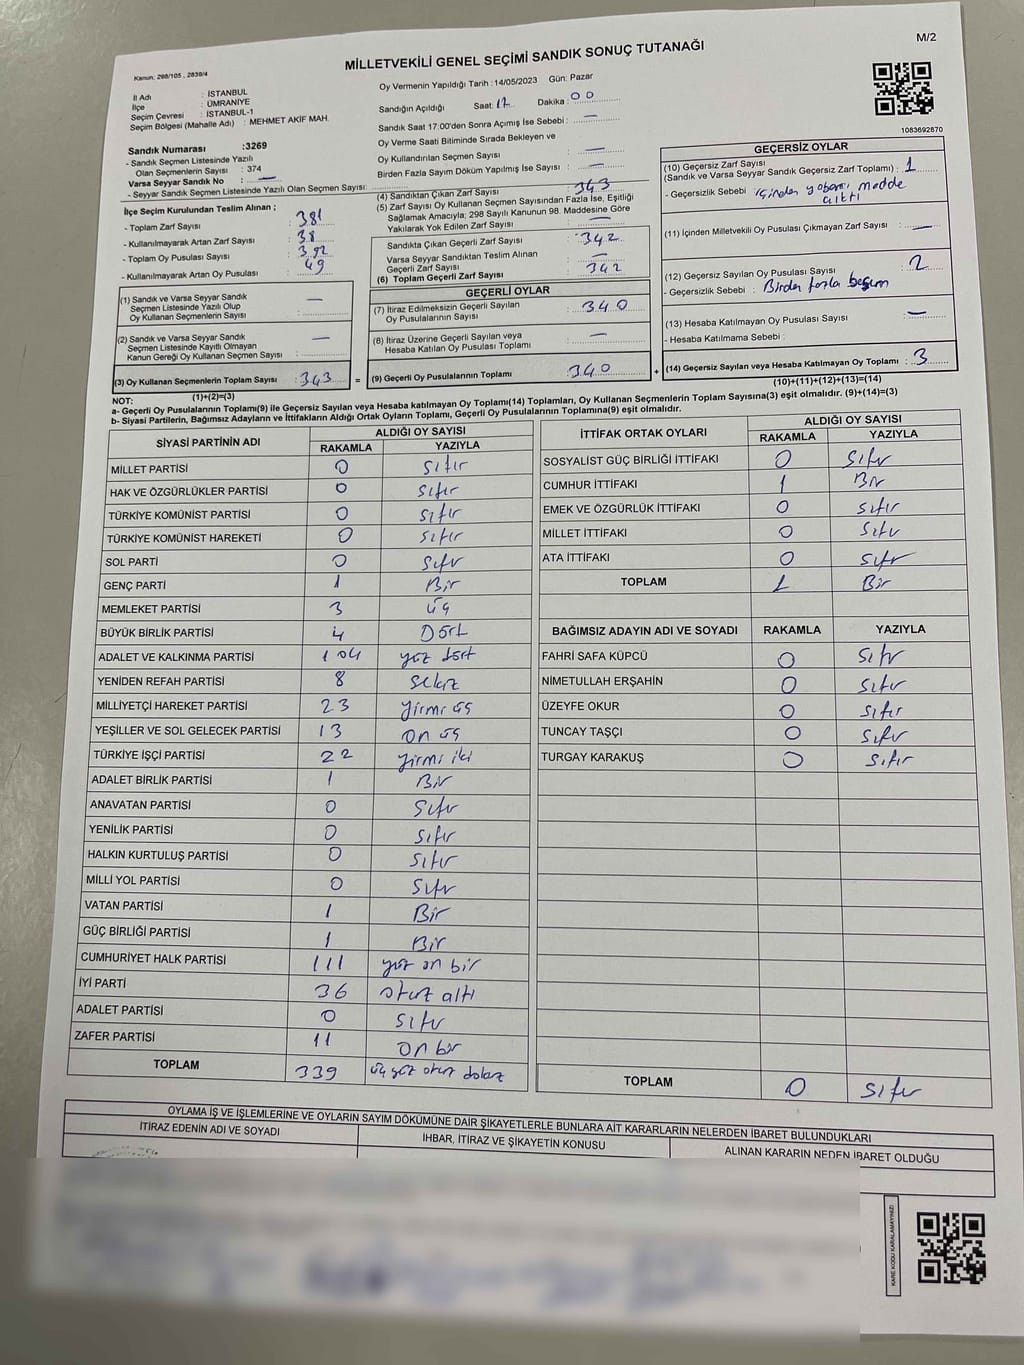 M/2
MİLLETVEKİLİ GENEL SEÇİMİ SANDIK SONUÇ TUTANAĞI
Kanun: 298/105 , 2839/4
İl Adı : İSTANBUL
İlçe : ÜMRANİYE
Seçim Çevresi : İSTANBUL-1
Seçim Bölgesi (Mahalle Adı) : MEHMET AKİF MAH.
Oy Vermenin Yapıldığı Tarih : 14/05/2023 Gün: Pazar
Sandığın Açıldığı Saat: 17 Dakika : 00
Sandık Saat 17:00'den Sonra Açımış İse Sebebi : —
Oy Verme Saati Bitiminde Sırada Bekleyen ve
Oy Kullandırılan Seçmen Sayısı : —
Birden Fazla Sayım Döküm Yapılmış İse Sayısı : —
1083692870
Sandık Numarası :3269
- Sandık Seçmen Listesinde Yazılı
Olan Seçmenlerin Sayısı : 374
Varsa Seyyar Sandık No : —
- Seyyar Sandık Seçmen Listesinde Yazılı Olan Seçmen Sayısı:
İlçe Seçim Kurulundan Teslim Alınan ;
- Toplam Zarf Sayısı : 381
- Kullanılmayarak Artan Zarf Sayısı : 38
- Toplam Oy Pusulası Sayısı : 392
- Kullanılmayarak Artan Oy Pusulası : 49
(1) Sandık ve Varsa Seyyar Sandık
Seçmen Listesinde Yazılı Olup
Oy Kullanan Seçmenlerin Sayısı : —
(2) Sandık ve Varsa Seyyar Sandık
Seçmen Listesinde Kayıtlı Olmayan
Kanun Gereği Oy Kullanan Seçmen Sayısı : —
(3) Oy Kullanan Seçmenlerin Toplam Sayısı : 343 =
(1)+(2)=(3)
(4) Sandıktan Çıkan Zarf Sayısı : 343
(5) Zarf Sayısı Oy Kullanan Seçmen Sayısından Fazla İse, Eşitliği
Sağlamak Amacıyla; 298 Sayılı Kanunun 98. Maddesine Göre
Yakılarak Yok Edilen Zarf Sayısı : —
Sandıkta Çıkan Geçerli Zarf Sayısı : 342
Varsa Seyyar Sandıktan Teslim Alınan
Geçerli Zarf Sayısı : —
(6) Toplam Geçerli Zarf Sayısı : 342
GEÇERLİ OYLAR
(7) İtiraz Edilmeksizin Geçerli Sayılan
Oy Pusulalarının Sayısı : 340
(8) İtiraz Üzerine Geçerli Sayılan veya
Hesaba Katılan Oy Pusulası Toplamı : —
(9) Geçerli Oy Pusulalarının Toplamı : 340 +
GEÇERSİZ OYLAR
(10) Geçersiz Zarf Sayısı
(Sandık ve Varsa Seyyar Sandık Geçersiz Zarf Toplamı) : 1
- Geçersizlik Sebebi : içinden yabancı madde
çıktı
(11) İçinden Milletvekili Oy Pusulası Çıkmayan Zarf Sayısı : —
(12) Geçersiz Sayılan Oy Pusulası Sayısı : 2
- Geçersizlik Sebebi : Birden fazla basım
(13) Hesaba Katılmayan Oy Pusulası Sayısı : —
- Hesaba Katılmama Sebebi :
(14) Geçersiz Sayılan veya Hesaba Katılmayan Oy Toplamı : 3
(10)+(11)+(12)+(13)=(14)
NOT:
a- Geçerli Oy Pusulalarının Toplamı(9) ile Geçersiz Sayılan veya Hesaba katılmayan Oy Toplamı(14) Toplamları, Oy Kullanan Seçmenlerin Toplam Sayısına(3) eşit olmalıdır. (9)+(14)=(3)
b- Siyasi Partilerin, Bağımsız Adayların ve İttifakların Aldığı Ortak Oyların Toplamı, Geçerli Oy Pusulalarının Toplamına(9) eşit olmalıdır.
SİYASİ PARTİNİN ADI ALDIĞI OY SAYISI
RAKAMLA YAZIYLA
MİLLET PARTİSİ 0 sıfır
HAK VE ÖZGÜRLÜKLER PARTİSİ 0 sıfır
TÜRKİYE KOMÜNİST PARTİSİ 0 sıfır
TÜRKİYE KOMÜNİST HAREKETİ 0 sıfır
SOL PARTİ 0 sıfır
GENÇ PARTİ 1 Bir
MEMLEKET PARTİSİ 3 üç
BÜYÜK BİRLİK PARTİSİ 4 Dört
ADALET VE KALKINMA PARTİSİ 104 yüz dört
YENİDEN REFAH PARTİSİ 8 sekiz
MİLLİYETÇİ HAREKET PARTİSİ 23 yirmi üç
YEŞİLLER VE SOL GELECEK PARTİSİ 13 on üç
TÜRKİYE İŞÇİ PARTİSİ 22 yirmi iki
ADALET BİRLİK PARTİSİ 1 Bir
ANAVATAN PARTİSİ 0 sıfır
YENİLİK PARTİSİ 0 sıfır
HALKIN KURTULUŞ PARTİSİ 0 sıfır
MİLLİ YOL PARTİSİ 0 sıfır
VATAN PARTİSİ 1 Bir
GÜÇ BİRLİĞİ PARTİSİ 1 Bir
CUMHURİYET HALK PARTİSİ 111 yüz on bir
İYİ PARTİ 36 otuz altı
ADALET PARTİSİ 0 sıfır
ZAFER PARTİSİ 11 on bir
TOPLAM 339 üç yüz otuz dokuz
İTTİFAK ORTAK OYLARI ALDIĞI OY SAYISI
RAKAMLA YAZIYLA
SOSYALİST GÜÇ BİRLİĞİ İTTİFAKI 0 sıfır
CUMHUR İTTİFAKI 1 Bir
EMEK VE ÖZGÜRLÜK İTTİFAKI 0 sıfır
MİLLET İTTİFAKI 0 sıfır
ATA İTTİFAKI 0 sıfır
TOPLAM 1 Bir
BAĞIMSIZ ADAYIN ADI VE SOYADI RAKAMLA YAZIYLA
FAHRİ SAFA KÜPCÜ 0 sıfır
NİMETULLAH ERŞAHİN 0 sıfır
ÜZEYFE OKUR 0 sıfır
TUNCAY TAŞÇI 0 sıfır
TURGAY KARAKUŞ 0 sıfır
TOPLAM 0 sıfır
OYLAMA İŞ VE İŞLEMLERİNE VE OYLARIN SAYIM DÖKÜMÜNE DAİR ŞİKAYETLERLE BUNLARA AİT KARARLARIN NELERDEN İBARET BULUNDUKLARI
İTİRAZ EDENİN ADI VE SOYADI İHBAR, İTİRAZ VE ŞİKAYETİN KONUSU ALINAN KARARIN NEDEN İBARET OLDUĞU
KARE KODU KARALAMAYINIZ!